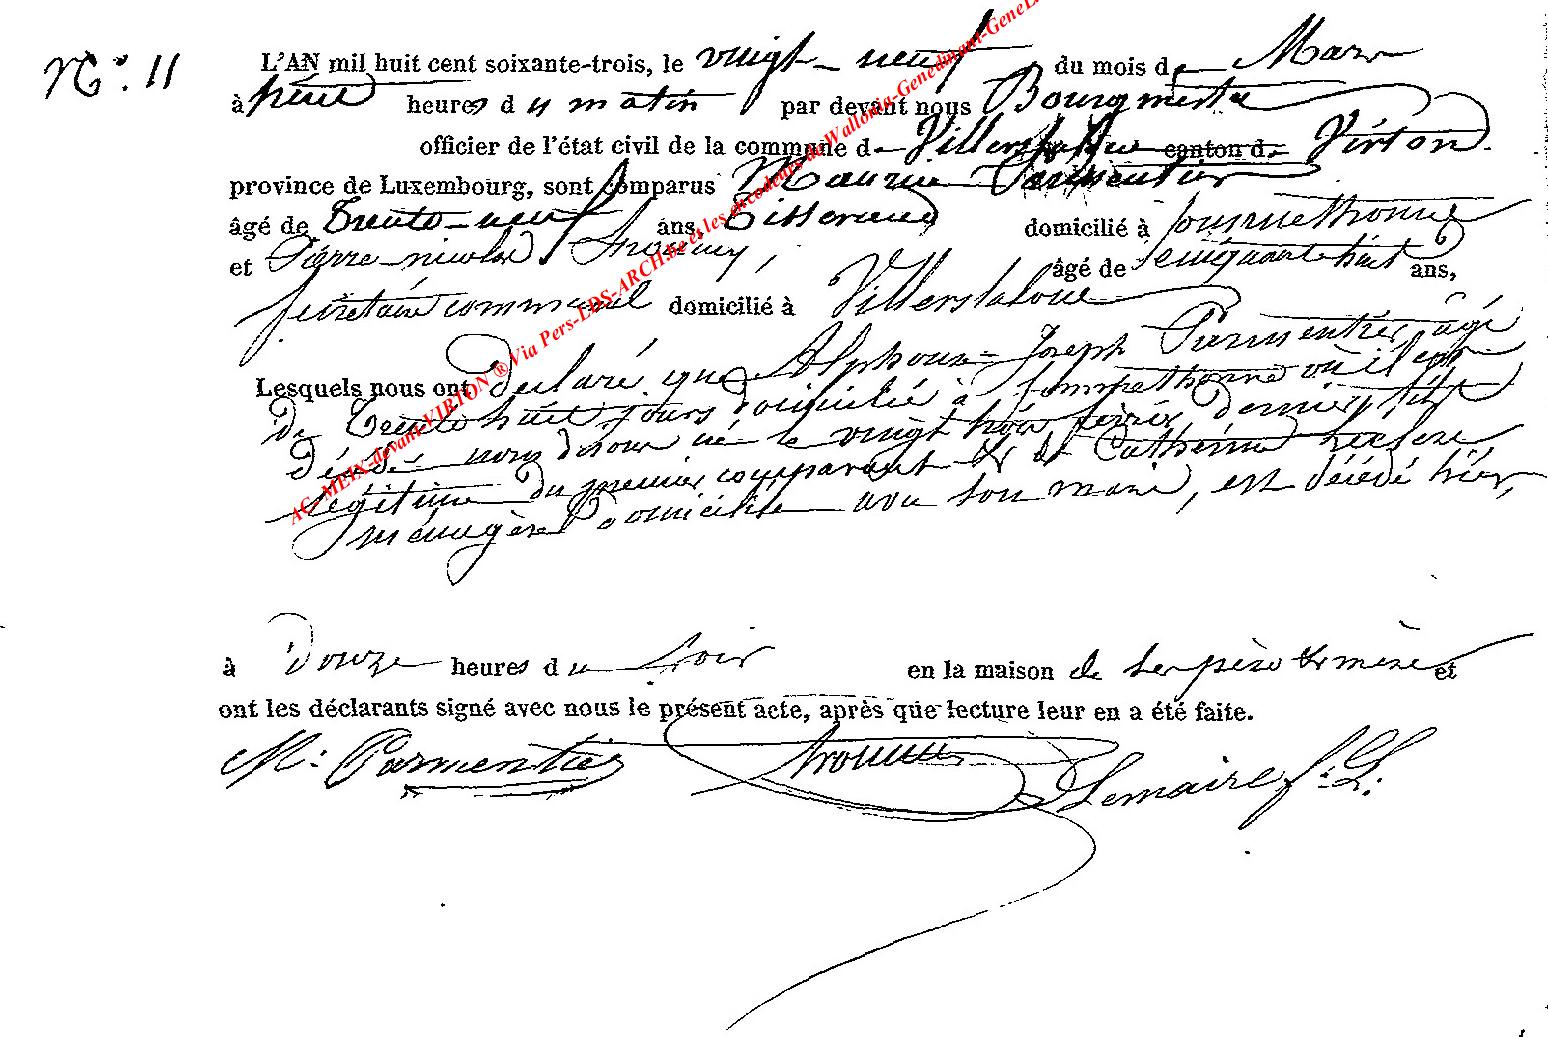 N° 11
L'AN mil huit cent soixante-trois, le vingt-neuf du mois de Mars
à heures du matin par devant nous Bourgmestre
officier de l'état civil de la commune de Villerslaloue canton de Virton
province de Luxembourg, sont comparus Maurice Parmentier
âgé de Trente-neuf ans, Tisserand domicilié à Sommethonne
et Pierre nicolas âgé de cinquante huit ans,
secrétaire communal domicilié à Villerslaloue
Lesquels nous ont déclaré que Alphonse-Joseph Parmentier, âgé
de Trente huit jours domicilié à Sommethonne où il est
décédé nous disons né le vingt trois dernier, fils
légitime du premier comparant & de Catherine
ménagère domiciliée avec son mari, est décédé hier,
à Douze heures du soir en la maison de ses père & mère et
ont les déclarants signé avec nous le présent acte, après que lecture leur en a été faite.
M. Parmentier Lemaire f. L.
AC-MEIX-devant-VIRTON ® Via Pers-LDS-ARCH.be et les encodeurs de Wallonia-Genedinant-GeneL